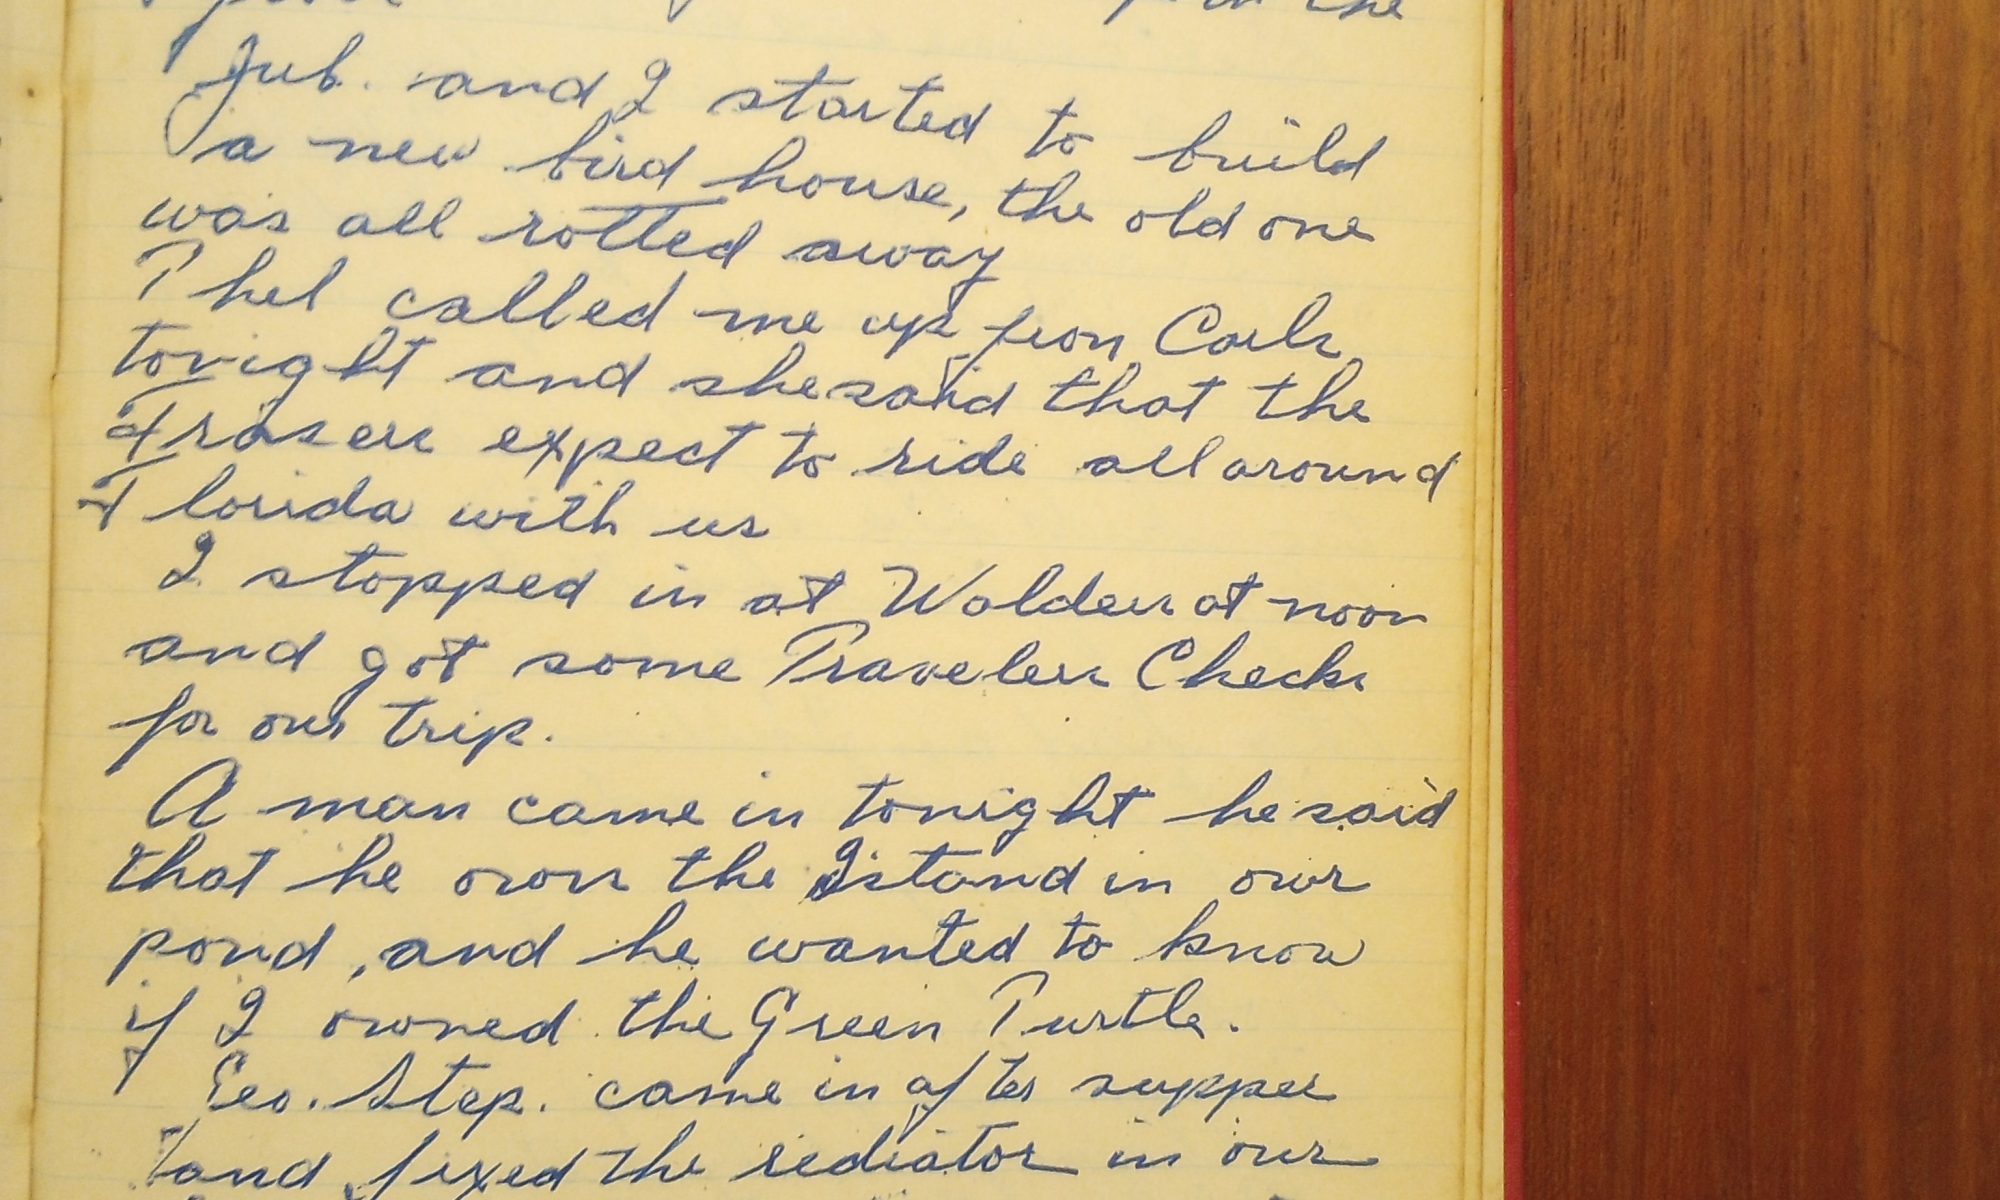 the
Jub. and I started to build
a new bird house, the old one
was all rotted away
Phel called me up from Carls
tonight and she said that the
Frasers expect to ride all around
Florida with us
I stopped in at Walden at noon
and got some Travelers Checks
for our trip.
A man came in tonight he said
that he own the Island in our
pond, and he wanted to know
if I owned the Green Turtle.
Geo. Step. came in after supper
and fixed the rediator in our